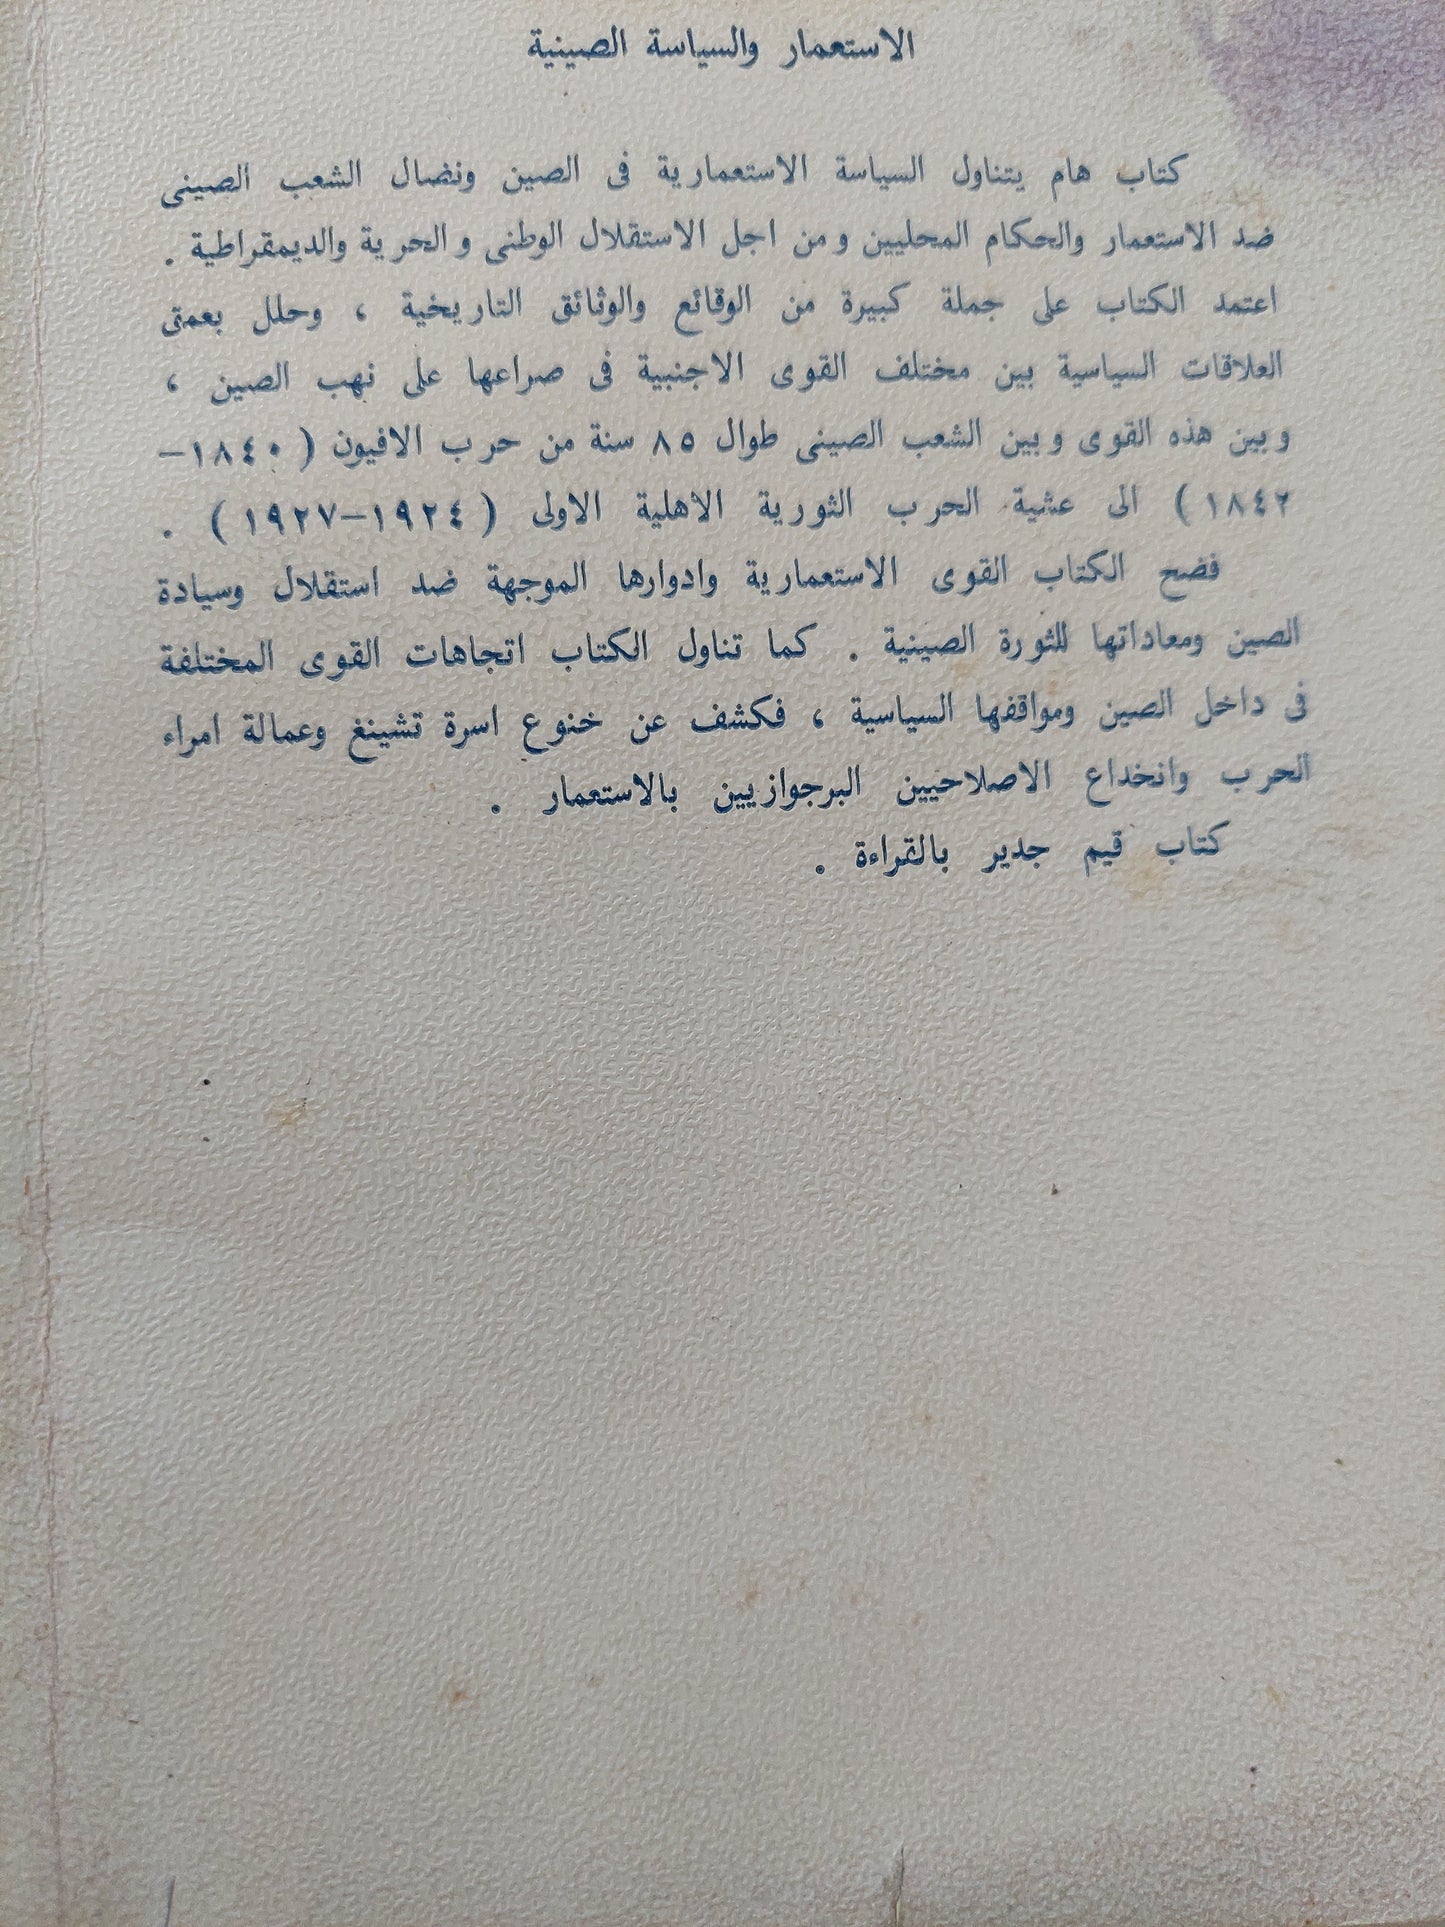 الاستعمار والسياسة الصينية
كتاب هام يتناول السياسة الاستعمارية فى الصين ونضال الشعب الصينى
ضد الاستعمار والحكام المحليين ومن اجل الاستقلال الوطنى والحرية والديمقراطية .
اعتمد الكتاب على جملة كبيرة من الوقائع والوثائق التاريخية ، وحلل بعمق
العلاقات السياسية بين مختلف القوى الاجنبية فى صراعها على نهب الصين ،
وبين هذه القوى وبين الشعب الصينى طوال ٨٥ سنة من حرب الافيون ( ١٨٤٠–
١٨٤٢ ) الى عشية الحرب الثورية الاهلية الاولى ( ١٩٢٤–١٩٢٧ ) .
فضح الكتاب القوى الاستعمارية وادوارها الموجهة ضد استقلال وسيادة
الصين ومعاداتها للثورة الصينية . كما تناول الكتاب اتجاهات القوى المختلفة
فى داخل الصين ومواقفها السياسية ، فكشف عن خنوع اسرة تشينغ وعمالة امراء
الحرب وانخداع الاصلاحيين البرجوازيين بالاستعمار .
كتاب قيم جدير بالقراءة .